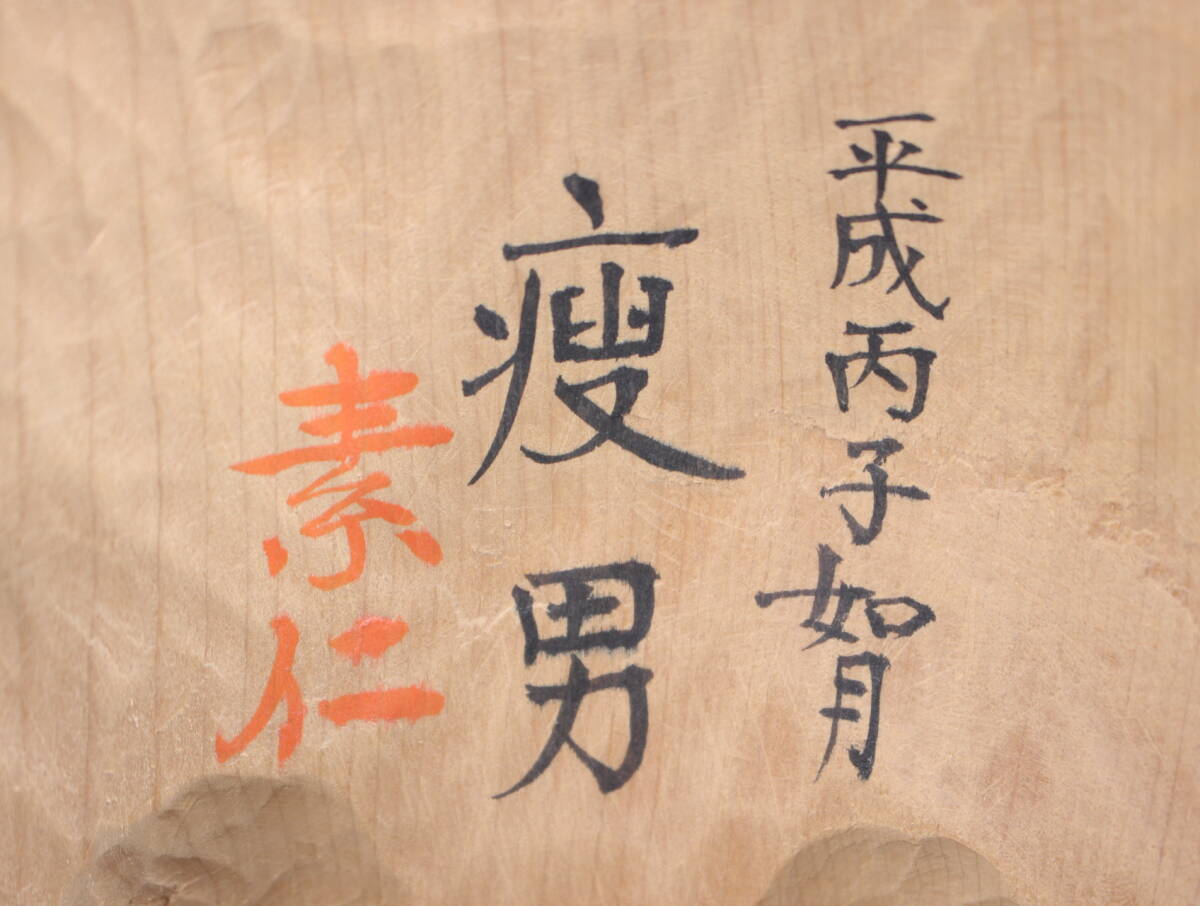 平成丙子如月
痩男
素仁